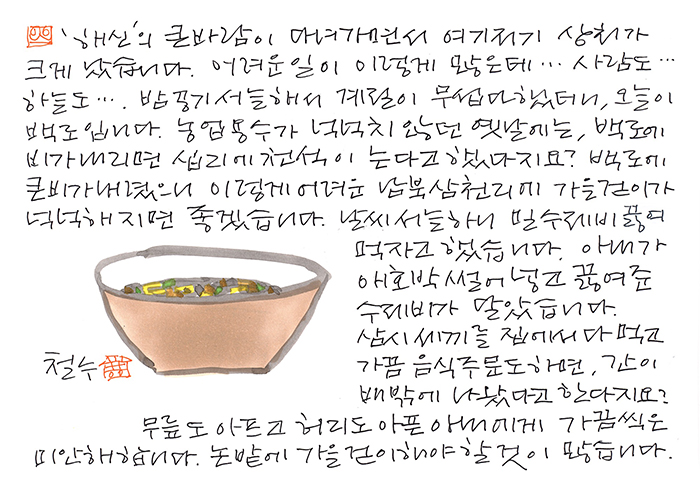 '해신'의 큰바람이 다녀가면서 여기저기 상처가
크게 났습니다. 어려운일이 이렇게 많은데… 사람도…
하늘도…. 밤공기 서늘해서 계절이 무섭다했더니, 오늘이
백로입니다. 농업용수가 넉넉치 않던 옛날에는, 백로에
비가내리면 십리에 천석이 는다고 했다지요? 백로에
큰비가내렸으니 이렇게 어려운 남북삼천리에 가을걷이가
넉넉해지면 좋겠습니다. 날씨 서늘하니 밀수제비 끓여
먹자고 했습니다. 아내가
애호박 썰어 넣고 끓여준
수제비가 달았습니다.
삼시세끼를 집에서 다 먹고
가끔 음식주문도하면, 간이
배밖에 나왔다고 한다지요?
철수
무릎도 아프고 허리도 아픈 아내에게 가끔씩은
미안해 합니다. 논밭에 가을걷이해야 할것이 많습니다.